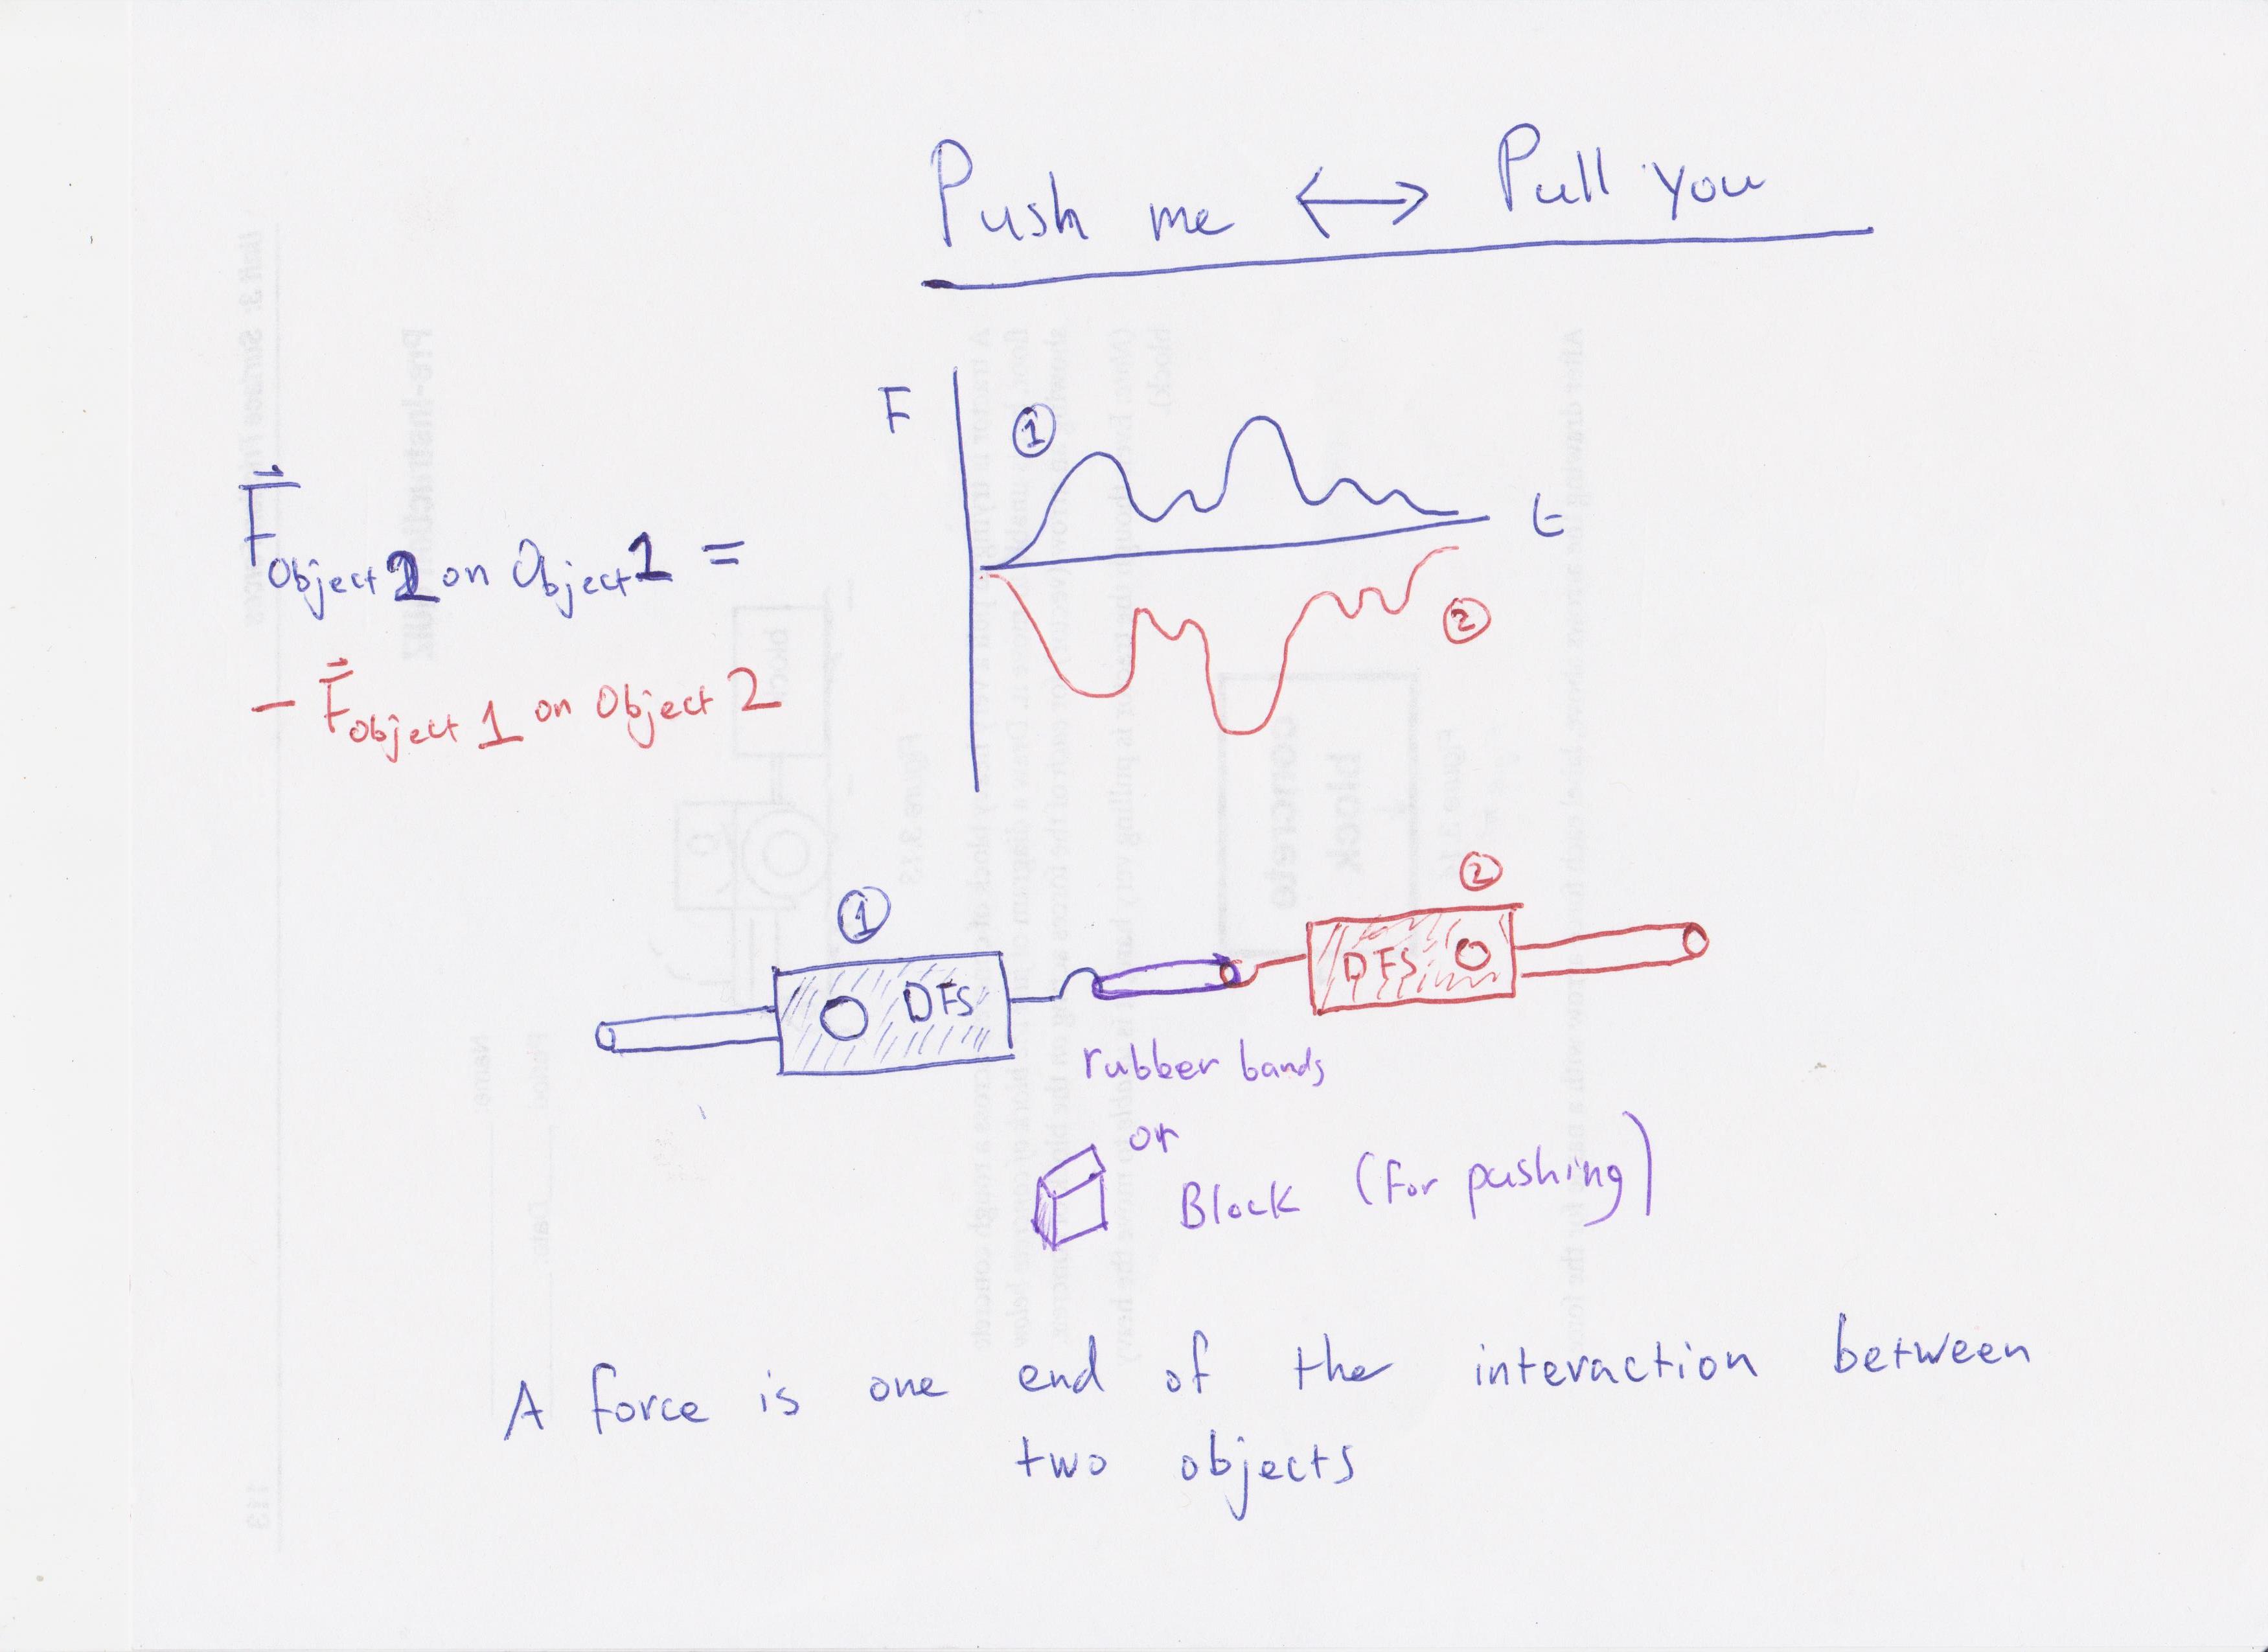 Push me ↔ Pull you
F
①
t
②
F⃗ Object 2 on Object 1 =
- F⃗ Object 1 on Object 2
①
②
DFS
DFS
rubber bands
or
Block (for pushing)
A force is one end of the interaction between
two objects